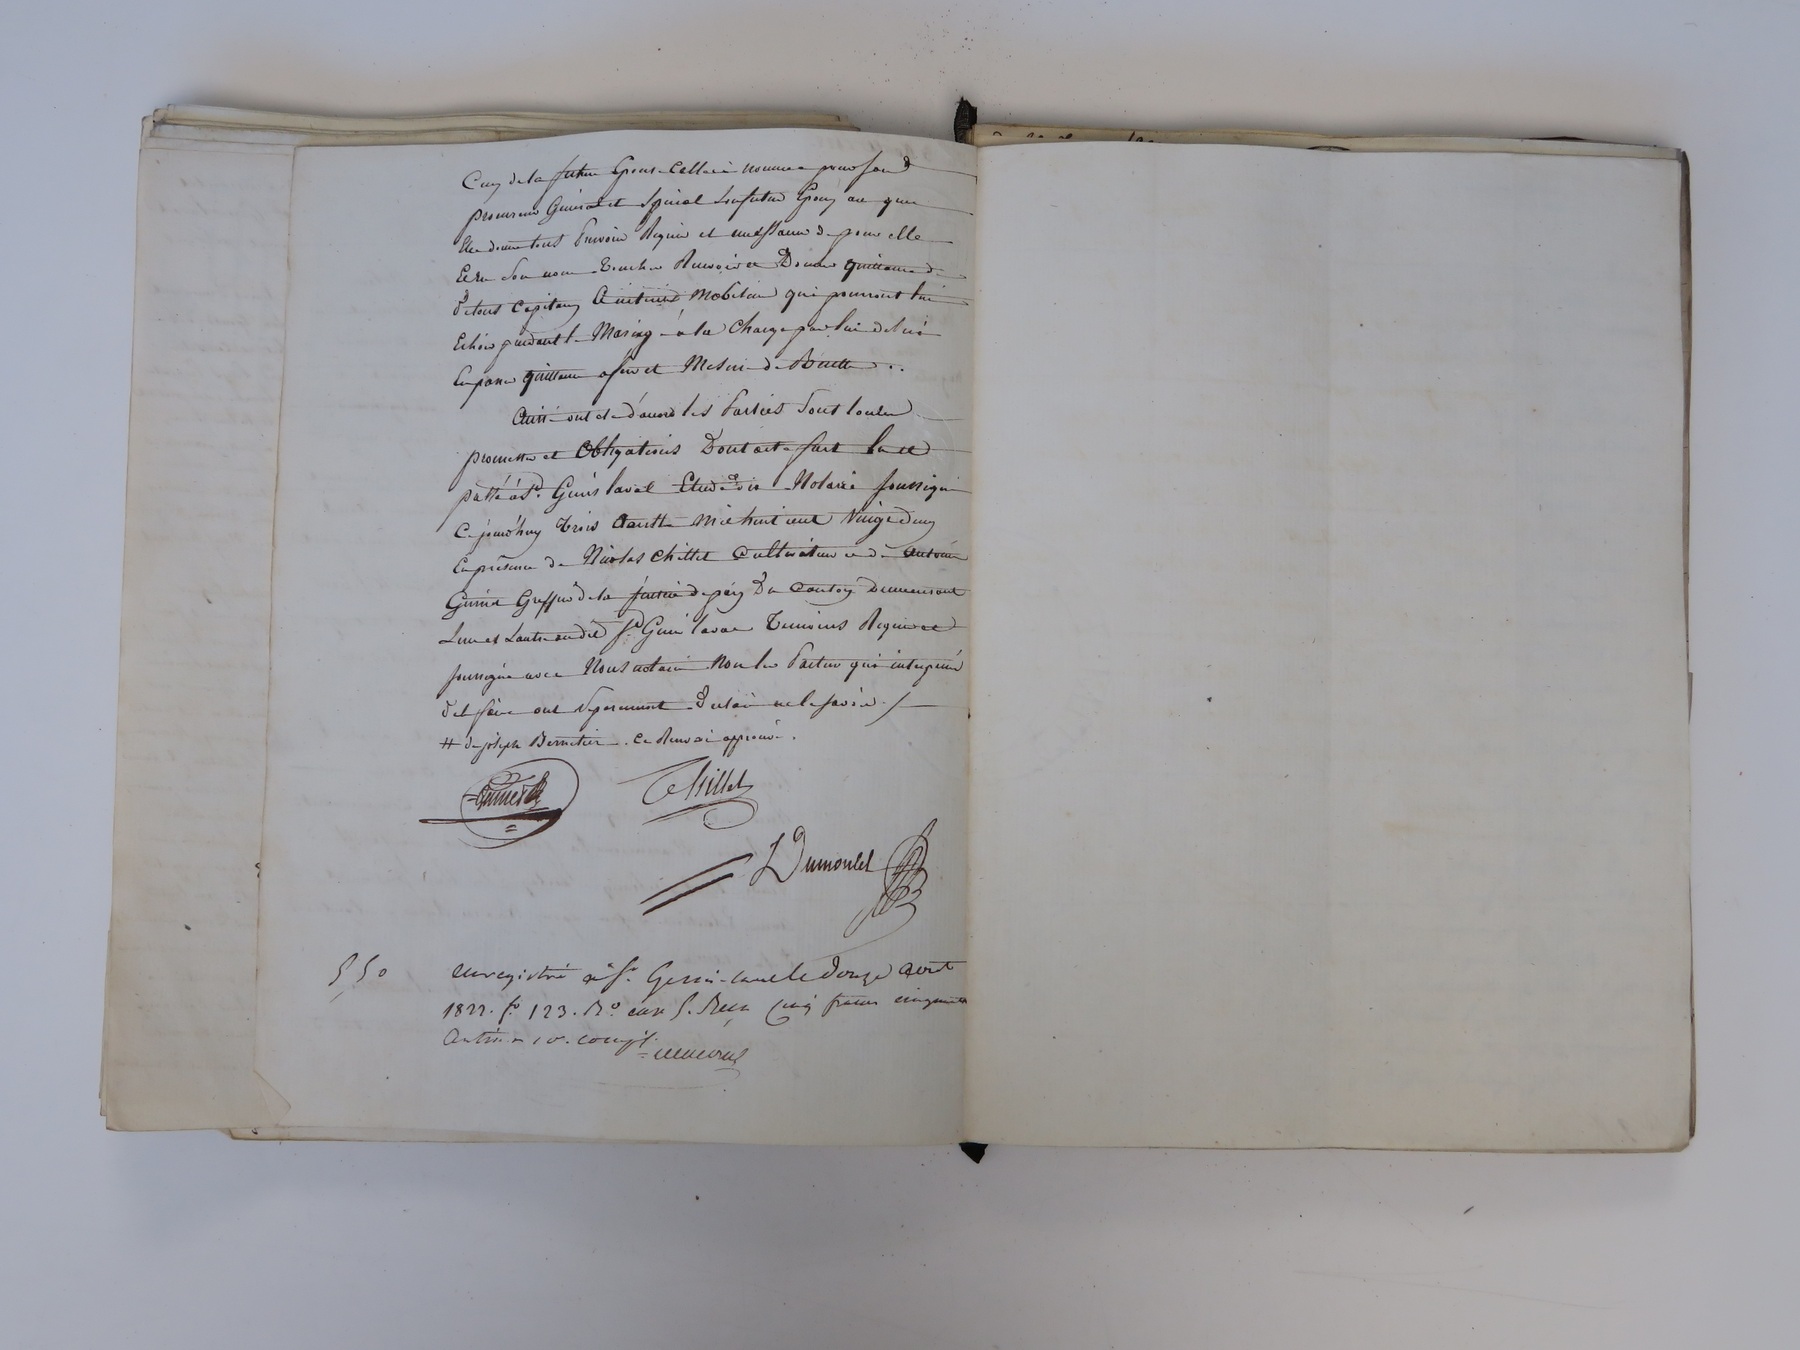 Ceux de la future Epouse celle ci nomme pour son
procureur Général et Spécial Le futur Epoux au quel
Elle donne tous Pouvoirs Requis et nécessaires de pour elle
Et En Son nom Toucher Recevoir et Donner quittance de
de tous capitaux Mobiliers qui pourront lui
Echoir pendant le Mariage à la Charge par lui de lui
En passer quittance à fur et Mesure de Recette ..
Ainsi ont été d'accord les Parties Sous toutes
promesses et Obligations Dont acte fait lu et
passé à St. Genis laval Etude de Notaire soussigné
Ce jourd'huy Trois Aoust Mil huit cent Vingt deux
En présence de Nicolas Chillet Cultivateur et de antoine
Greffier de la justice de paix Du Canton Demeurant
L'un et L'autre au dit St. Genis laval Temoins Requis et
soussignés avec Nous notaire Non les Parties qui interpellés
de le faire ont Séparément Déclaré ne le savoir ./
# de joseph . Ce Renvoi approuvé .
Chillet
Dumoulet
5,50 Enregistré à St. Genis laval le Douze Aout
1822. fo. 123. Ro. case 5. Reçu Cinq francs cinquante
Centimes 10e. compt.